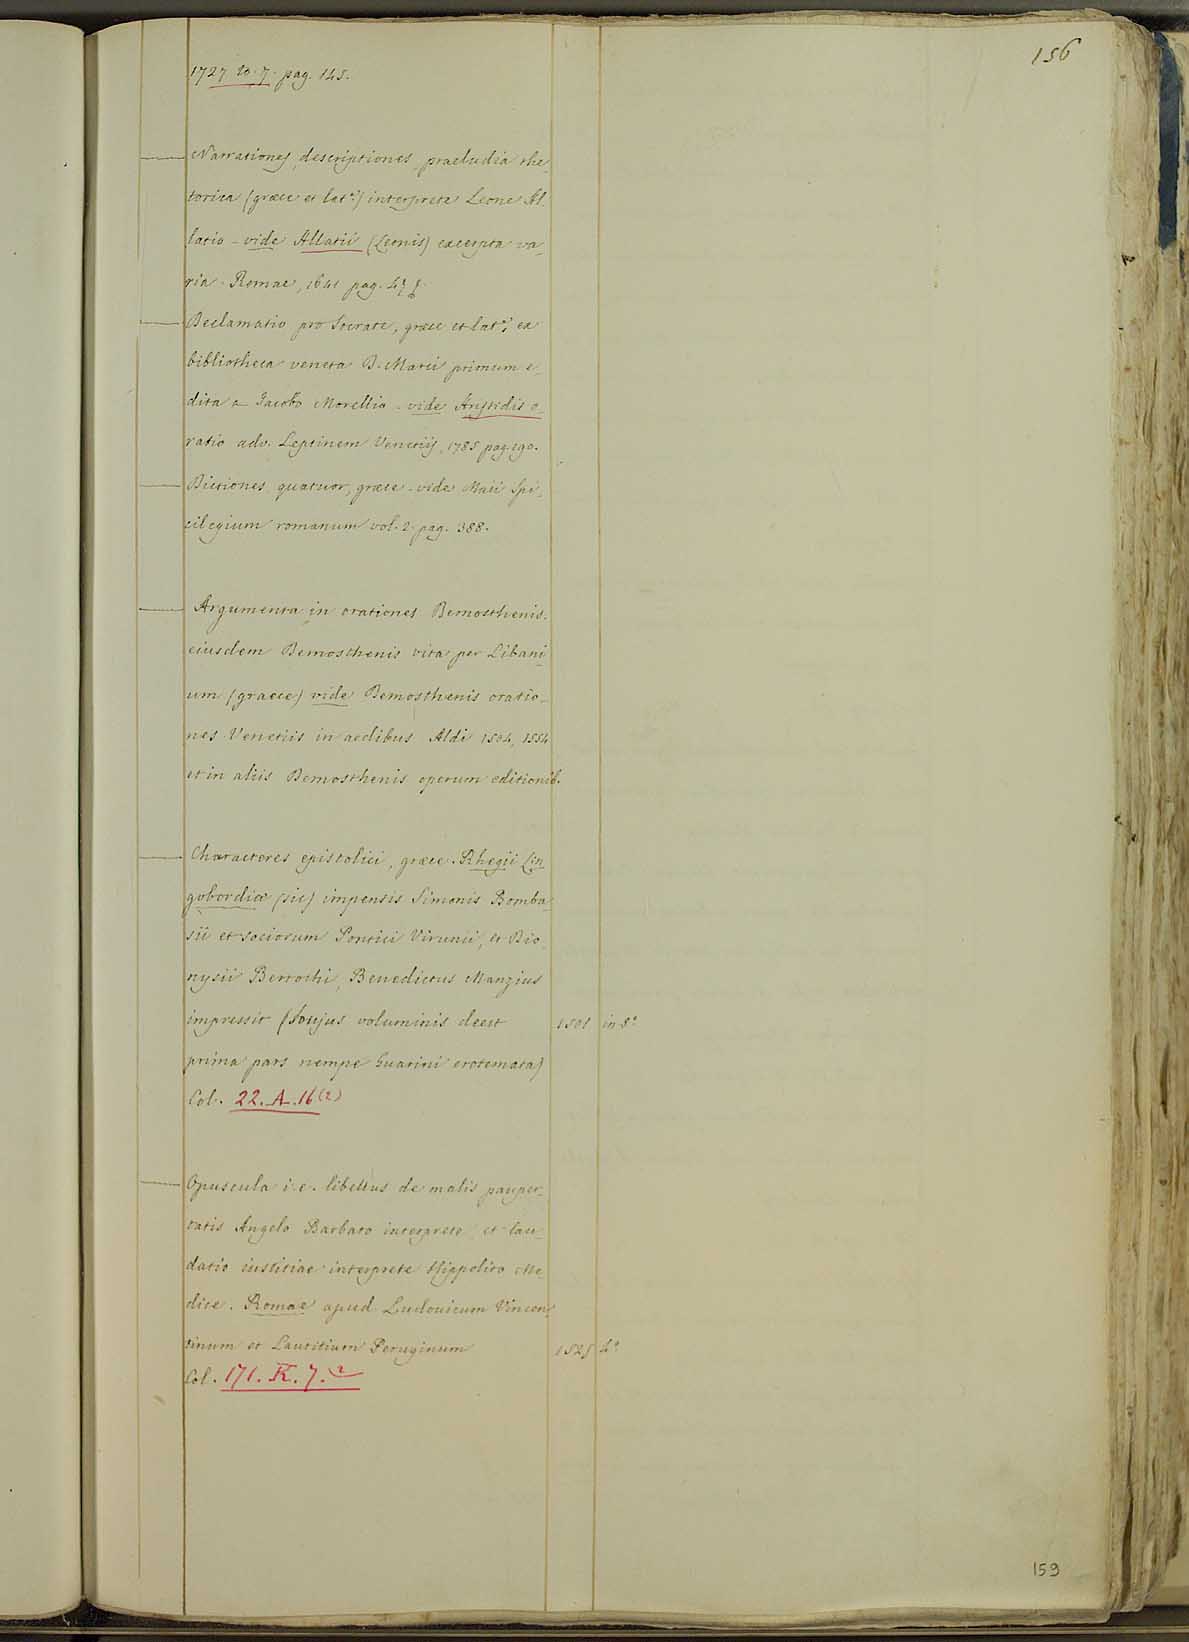 156
1727 to. 7. pag. 145.
Narrationes, descriptiones, praeludia rhe-
torica (græce et latᵉ) interprete Leone Al-
latio - vide Allatii (Leonis) excerpta va-
ria. Romae, 1641 pag.
Declamatio pro Socrate, græce et latᵉ, ex
bibliotheca veneta D. Marci primum e-
dita a Jacobo Morellio - vide Aristidis o-
ratio adv. Leptinem Venetiis, 1785 pag. 190.
Dictiones quatuor, græce - vide Maii Spi-
cilegium romanum vol. 2. pag. 388.
Argumenta in orationes Demosthenis.
eiusdem Demosthenis vita per Libani-
um (graece) vide Demosthenis oratio-
nes Venetiis in aedibus Aldi 1504, 1554
et in aliis Demosthenis operum editionib.
Characteres epistolici, græce. Rhegii Lin-
gobordiæ (sic) impensis Simonis Bomba-
sii et sociorum Pontici Virunii, et Dio-
nysii Berrochi, Benedictus Manzius
impressit (Hujus voluminis deest 1501 in-8º
prima pars nempe Guarini erotemata)
Col. 22. A. 16 (2)
Opuscula i.e. libellus de malis pauper-
tatis Angelo Barbato interprete et lau-
datio iustitiae interprete Hippolito Me-
dice. Romae apud Ludovicum Vincen-
tinum et Lautitium Peruginum 1525 4º
Col. 171. K. 7. 2
159